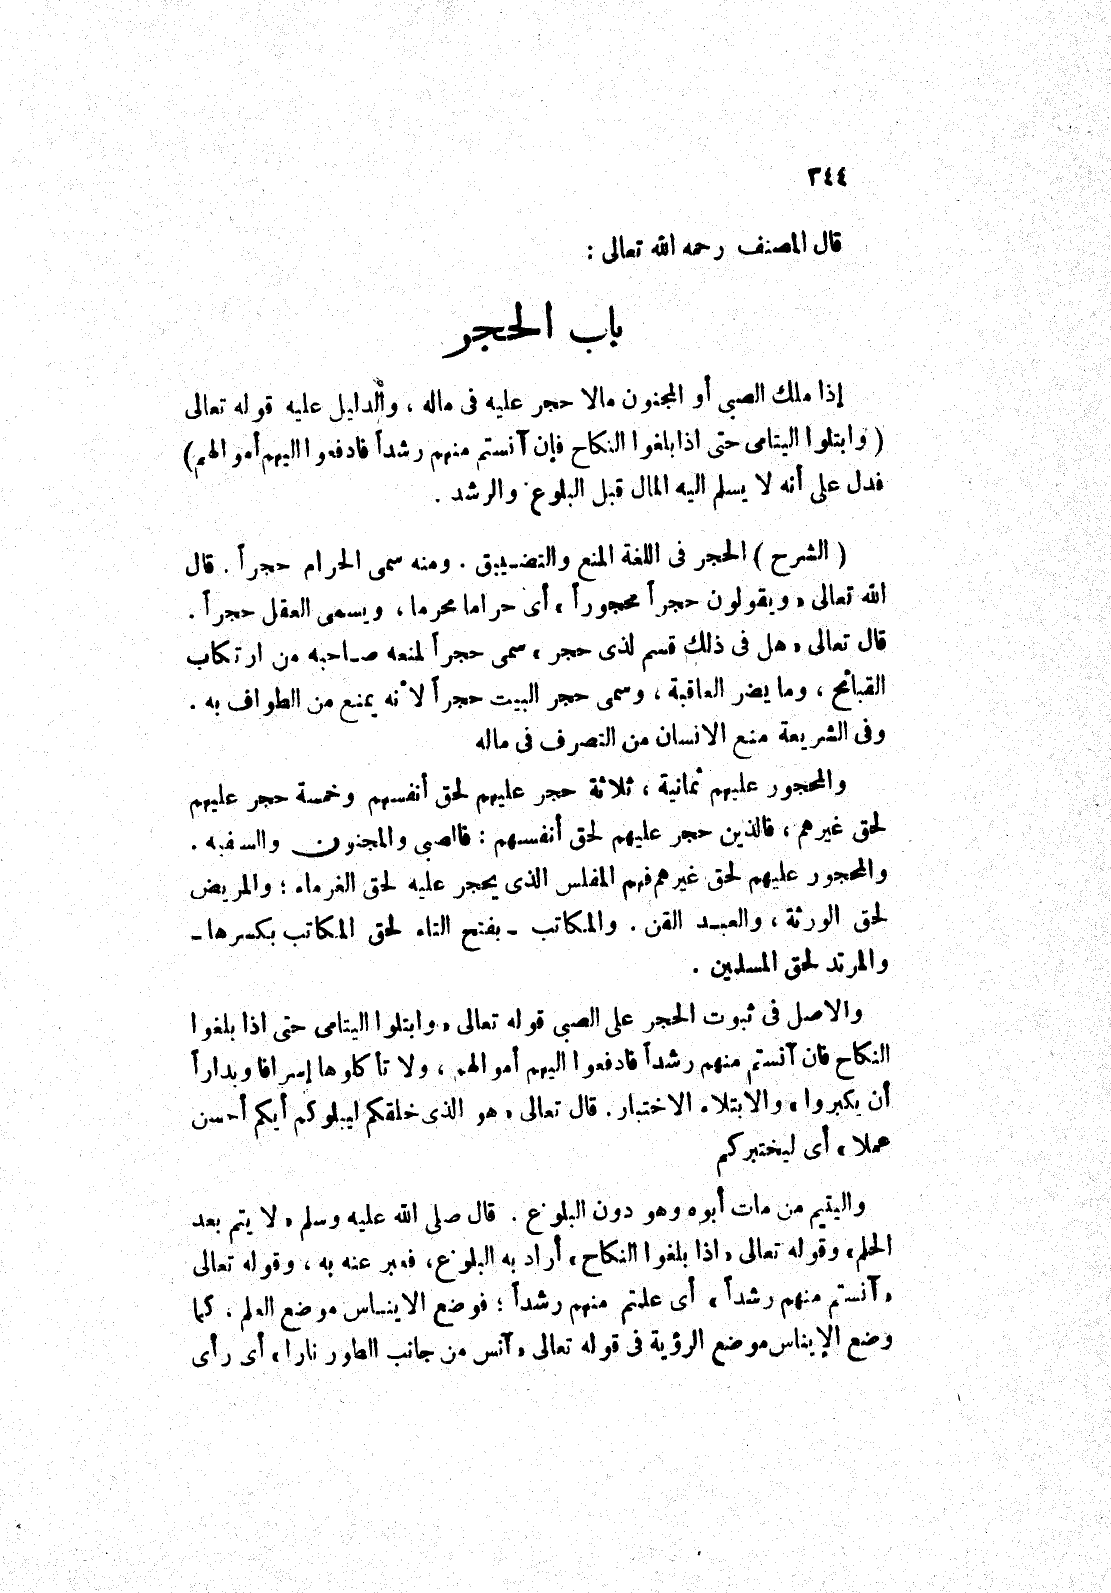 ٣٤٤
قال المصنف رحمه الله تعالى :
باب الحجر
إذا ملك الصبى أو المجنون مالا حجر عليه فى ماله ، والدليل عليه قوله تعالى
( وابتلوا اليتامى حتى اذا بلغوا النكاح فإن آنستم منهم رشداً فادفعوا اليهم أموالهم)
فدل على أنه لا يسلم اليه المال قبل البلوغ والرشد .
( الشرح ) الحجر فى اللغة المنع والتضييق . ومنه سمى الحرام حجراً . قال
الله تعالى « ويقولون حجراً محجوراً » أى حراما محرما ، ويسمى العقل حجراً .
قال تعالى « هل فى ذلك قسم لذى حجر » سمى حجراً لمنعه صاحبه من ارتكاب
القبائح ، وما يضر العاقبة ، وسمى حجر البيت حجراً لأنه يمنع من الطواف به .
وفى الشريعة منع الانسان من التصرف فى ماله
والمحجور عليهم ثمانية ، ثلاثة حجر عليهم لحق أنفسهم وخمسة حجر عليهم
لحق غيرهم ، فالذين حجر عليهم لحق أنفسهم : فالصبى والمجنون والسفيه .
والمحجور عليهم لحق غيرهم فهم المفلس الذى يحجر عليه لحق الغرماء ؛ والمريض
لحق الورثة ، والعبد القن . والمكاتب ـ بفتح التاء لحق المكاتب بكسرها ـ
والمرتد لحق المسلمين .
والاصل فى ثبوت الحجر على الصبى قوله تعالى « وابتلوا اليتامى حتى اذا بلغوا
النكاح فان آنستم منهم رشداً فادفعوا اليهم أموالهم ، ولا تأكلوها إسرافا وبداراً
أن يكبروا » والابتلاء الاختبار . قال تعالى « هو الذى خلقكم ليبلوكم أيكم أحسن
عملا » أى ليختبركم
واليتيم من مات أبوه وهو دون البلوغ . قال صلى الله عليه وسلم « لا يتم بعد
الحلم » وقوله تعالى « اذا بلغوا النكاح » أراد به البلوغ ، فعبر عنه به ، وقوله تعالى
« آنستم منهم رشداً » أى علمتم منهم رشداً ؛ فوضع الايناس موضع العلم ، كما
وضع الإيناس موضع الرؤية فى قوله تعالى « آنس من جانب الطور نارا » أى رأى